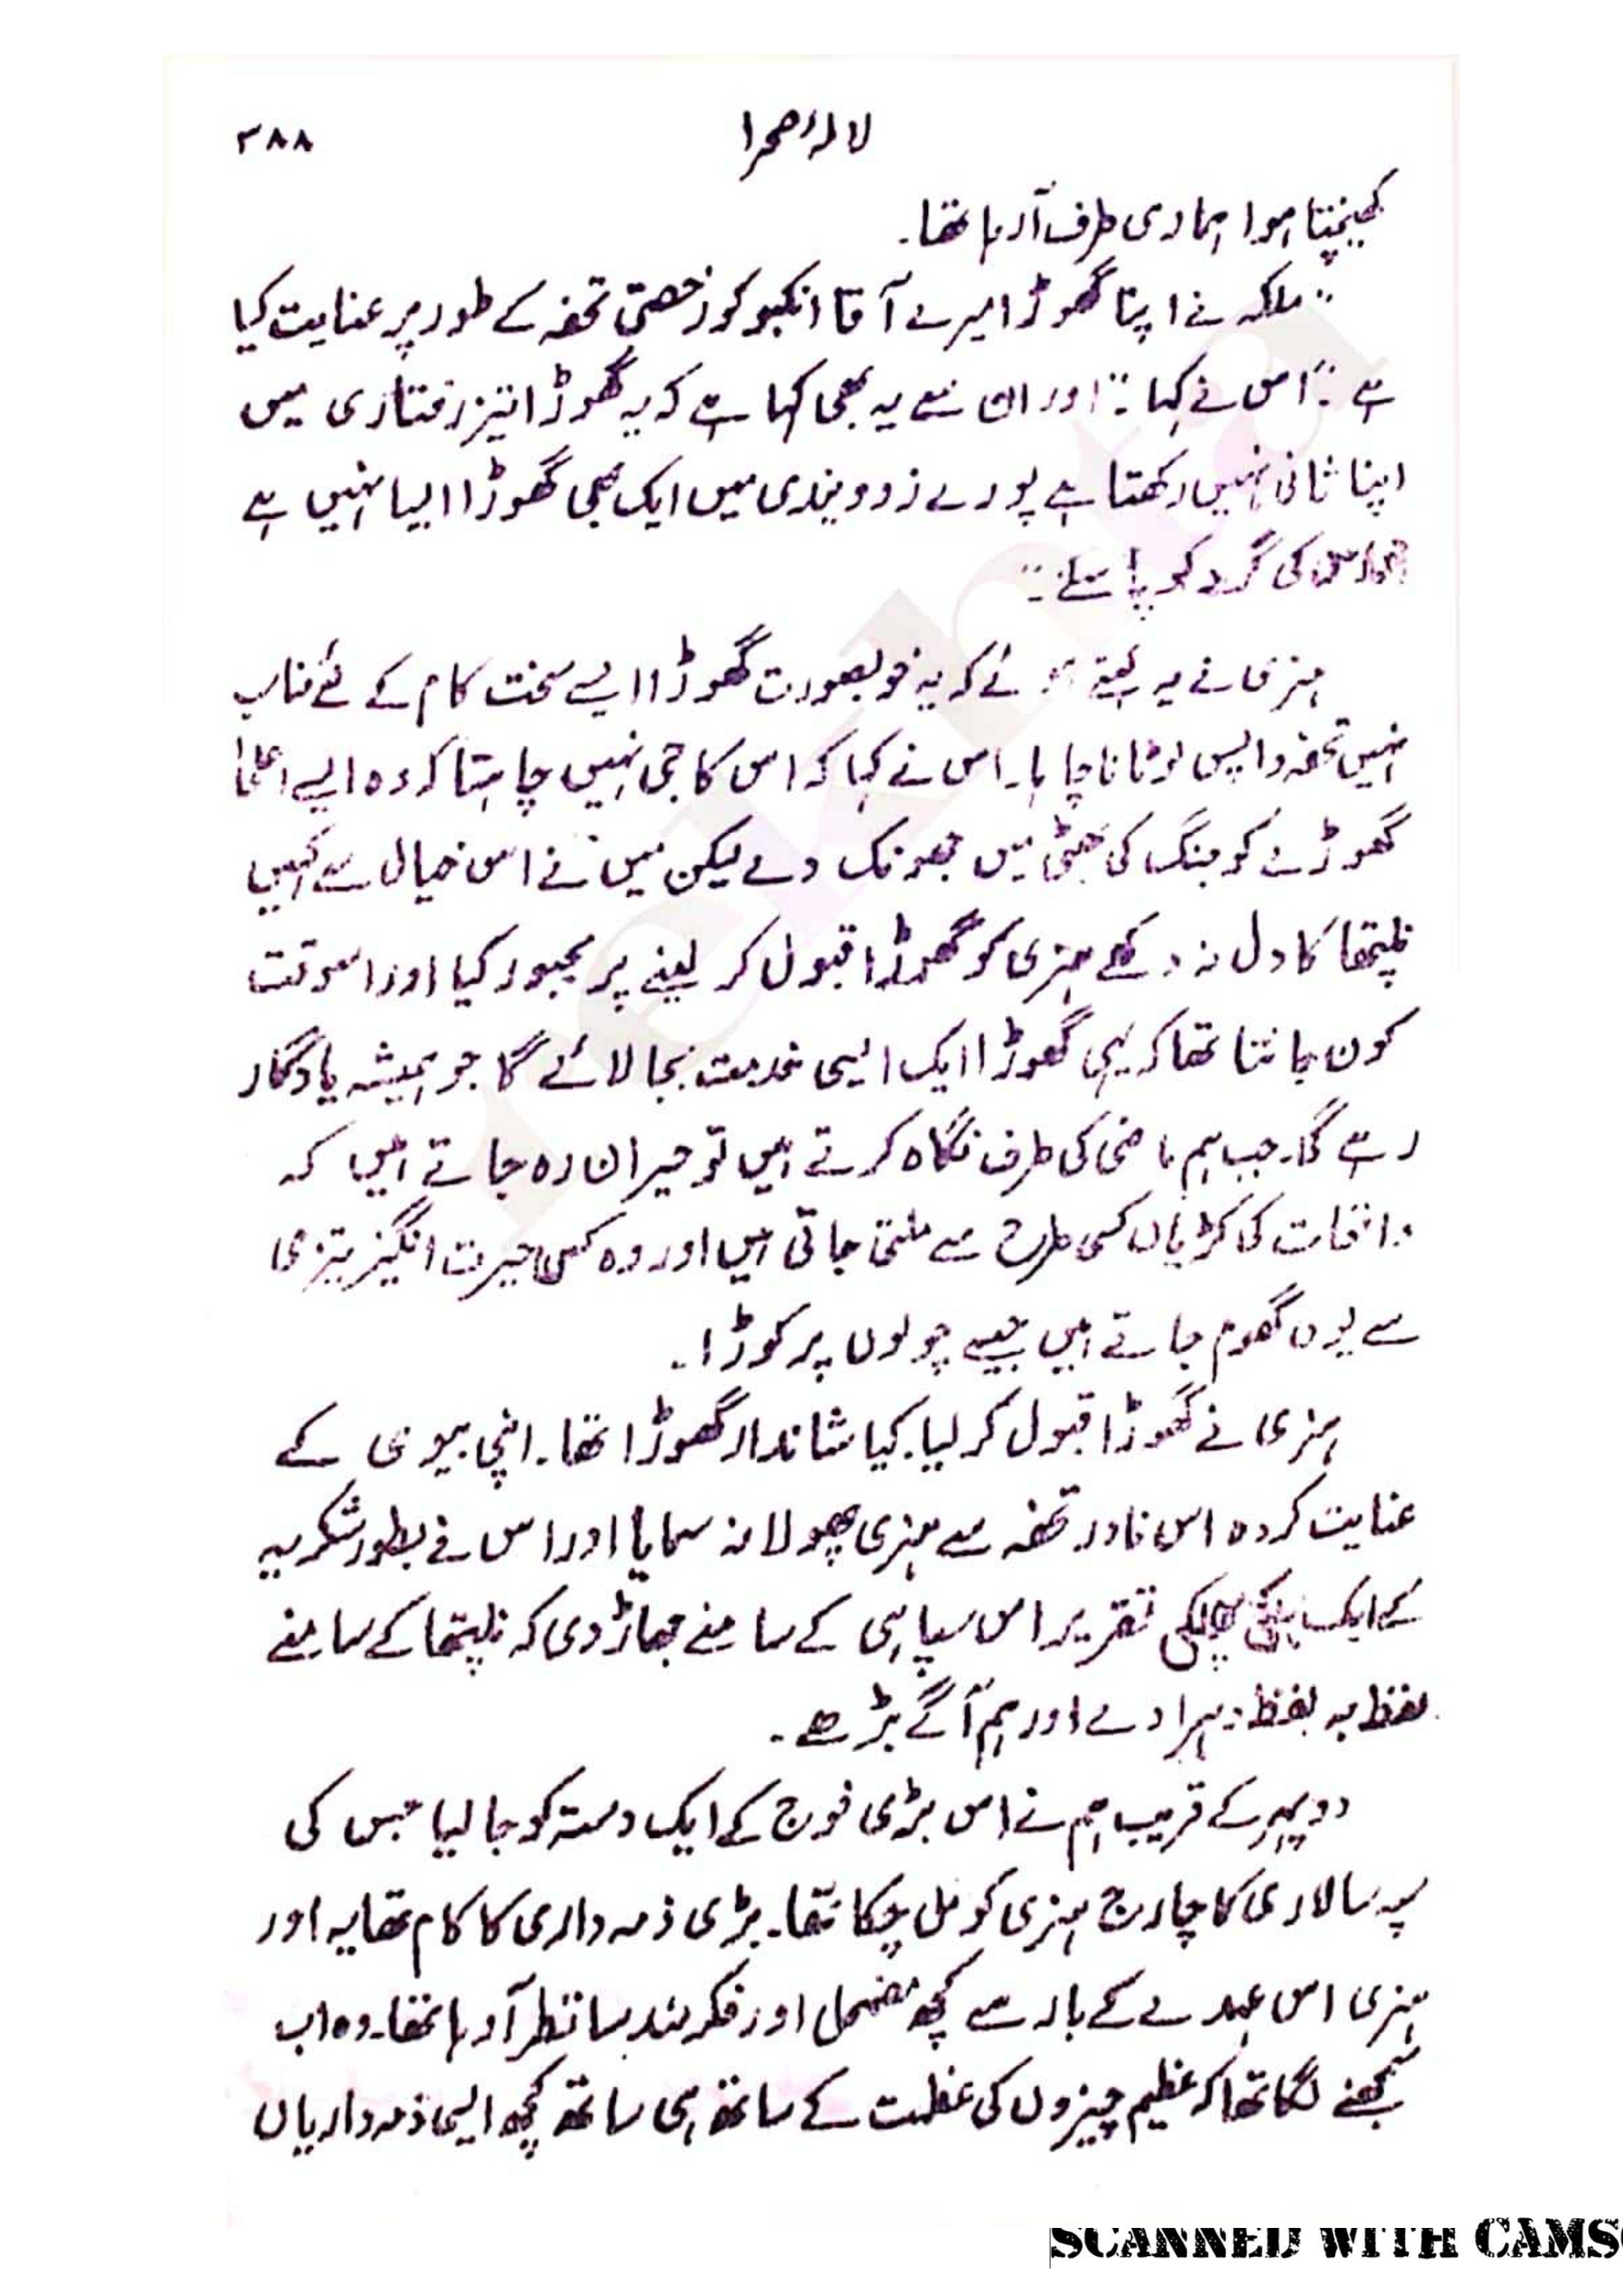 لالۂ صحرا ۳۸۸
کھینچتا ہوا ہماری طرف آ رہا تھا۔
"ملکہ نے اپنا گھوڑا میرے آقا انکبو کو رخصتی تحفہ کے طور پر عنایت کیا
ہے۔" اس نے کہا۔ "اور ان سے یہ بھی کہا ہے کہ یہ گھوڑا تیز رفتاری میں
اپنا ثانی نہیں رکھتا ہے پورے زوونیدی میں ایک بھی گھوڑا ایسا نہیں ہے
جو اس کی گرد کو پا سکے۔"
ہنری نے یہ کہتے ہوئے کہ یہ خوبصورت گھوڑا ایسے سخت کام کے لئے مناسب
نہیں تحفہ واپس لوٹانا چاہا۔ اس نے کہا کہ اس کا جی نہیں چاہتا کہ وہ ایسے اعلیٰ
گھوڑے کو جنگ کی بھٹی میں جھونک دے لیکن میں نے اس خیال سے کہیں
نلیتھا کا دل نہ دکھے ہنری کو گھوڑا قبول کر لینے پر مجبور کیا اور اسوقت
کون جانتا تھا کہ یہی گھوڑا ایک ایسی خدمت بجا لائے گا جو ہمیشہ یادگار
رہے گا۔ جب ہم ماضی کی طرف نگاہ کرتے ہیں تو حیران رہ جاتے ہیں کہ
واقعات کی کڑیاں کس طرح سے ملتی جاتی ہیں اور وہ کس حیرت انگیز تیزی
سے یوں گھوم جاتے ہیں جیسے چولوں پر کوڑا۔
ہنری نے گھوڑا قبول کر لیا۔ کیا شاندار گھوڑا تھا۔ اپنی بیوی کے
عنایت کردہ اس نادر تحفہ سے ہنری پھولا نہ سمایا اور اس نے بطور شکریہ
کے ایک ہلکی پھلکی تقریر اس سپاہی کے سامنے جھاڑ دی کہ نلیتھا کے سامنے
لفظ بہ لفظ دہرا دے اور ہم آگے بڑھے۔
دوپہر کے قریب ہم نے اس بڑی فوج کے ایک دستہ کو جا لیا جس کی
سپہ سالاری کا چارج ہنری کو مل چکا تھا۔ بڑی ذمہ داری کا کام تھا یہ اور
ہنری اس عہدے کے بار سے کچھ مضمحل اور فکرمند سا نظر آ رہا تھا۔ وہ اب
سمجھنے لگا تھا کہ عظیم چیزوں کی عظمت کے ساتھ ہی ساتھ کچھ ایسی ذمہ داریاں
SCANNED WITH CAMS